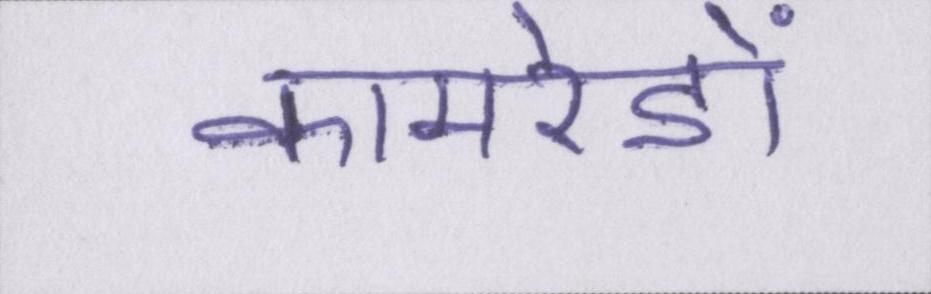 कामरेडों